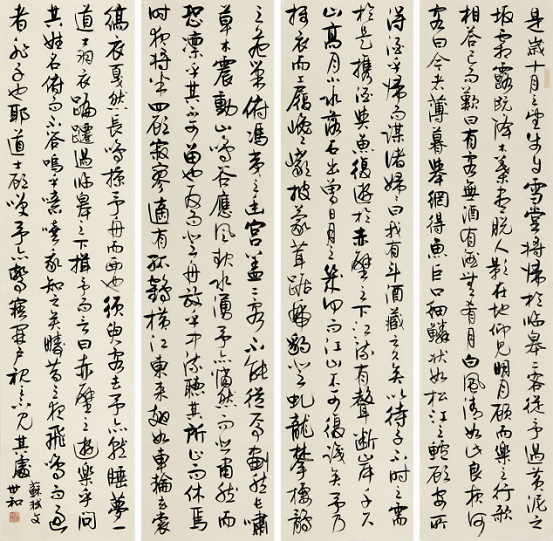 是歲十月之望步自雪堂將歸於臨皋二客從予過黃泥之
坂霜露既降木葉盡脫人影在地仰見明月顧而樂之行歌
相答已而歎曰有客無酒有酒無肴月白風清如此良夜何
客曰今者薄暮舉網得魚巨口細鱗狀如松江之鱸顧安所
得酒乎歸而謀諸婦婦曰我有斗酒藏之久矣以待子不時之需
於是攜酒與魚復遊於赤壁之下江流有聲斷岸千尺
山高月小水落石出曾日月之幾何而江山不可復識矣予乃
攝衣而上履巉巖披蒙茸踞虎豹登虬龍攀棲鶻
之危巢俯馮夷之幽宮蓋二客不能從焉劃然長嘯
草木震動山鳴谷應風起水湧予亦悄然而悲肅然而
恐凜乎其不可留也反而登舟放乎中流聽其所止而休焉
時夜將半四顧寂寥適有孤鶴橫江東來翅如車輪玄裳
縞衣戛然長鳴掠予舟而西也須臾客去予亦就睡夢一
道士羽衣蹁躚過臨皋之下揖予而言曰赤壁之遊樂乎問
其姓名俯而不答嗚呼噫嘻我知之矣疇昔之夜飛鳴而過
者非子也耶道士顧笑予亦驚寤開戶視之不見其處
蘇軾文
世和